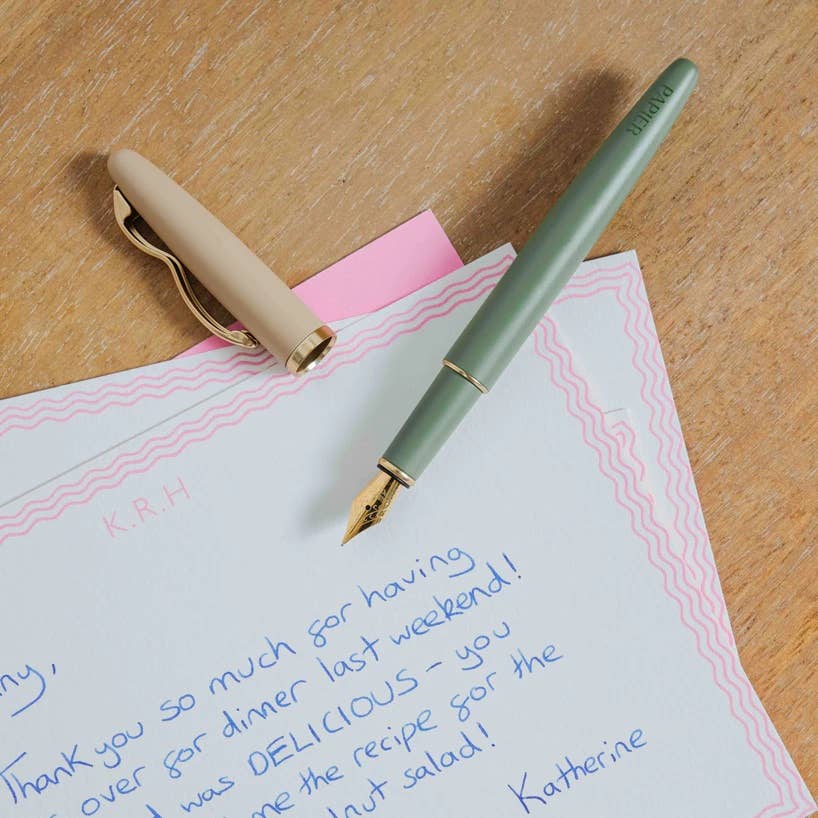 PAPIER
K.R.H
ny,
Thank you so much for having
over for dinner last weekend!
was DELICIOUS - you
me the recipe for the
nut salad!
Katherine